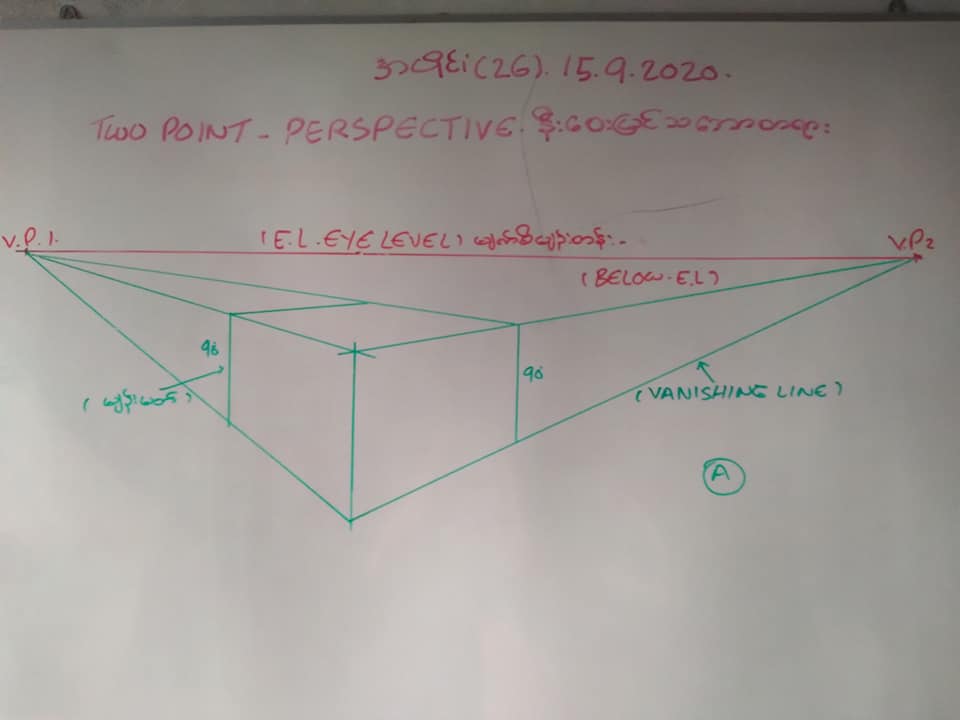 (26). 15.9.2020.
TWO POINT - PERSPECTIVE.
V.P.1.
(E.L. EYE LEVEL) မျက်စိမျဉ်းတန်း-
V.P2
(BELOW-E.L)
90
90
(မျဉ်းမတ်)
(VANISHING LINE)
A